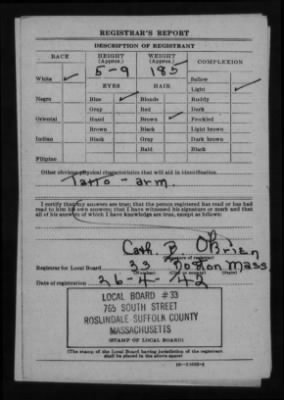 REGISTRAR'S REPORT
DESCRIPTION OF REGISTRANT
RACE HEIGHT (Approx.) WEIGHT (Approx.) COMPLEXION
5-9 185
White ✓ Sallow
EYES HAIR Light ✓
Negro Blue ✓ Blonde Ruddy
Gray Red Dark
Oriental Hazel Brown ✓ Freckled
Brown Black Light brown
Indian Black Gray Dark brown
Bald Black
Filipino
Other obvious physical characteristics that will aid in identification
Tatto - arm.
I certify that my answers are true; that the person registered has read or has had
read to him his own answers; that I have witnessed his signature or mark and that
all of his answers of which I have knowledge are true, except as follows:
Cath. B. O'Brien
(Signature of registrar)
Registrar for Local Board 33 Boston Mass
Date of registration 26-4-42
LOCAL BOARD #33
765 SOUTH STREET
ROSLINDALE SUFFOLK COUNTY
MASSACHUSETTS
(STAMP OF LOCAL BOARD)
(The stamp of the Local Board having jurisdiction of the registrant
shall be placed in the above space)